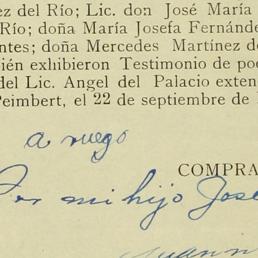 ez del Río; Lic. don José María
Río; doña María Josefa Fernánde
ntes; doña Mercedes Martínez d
ién exhibieron Testimonio de po
del Lic. Angel del Palacio exten
Peimbert, el 22 de septiembre de
a ruego
COMPRA
Por mi hijo Jose